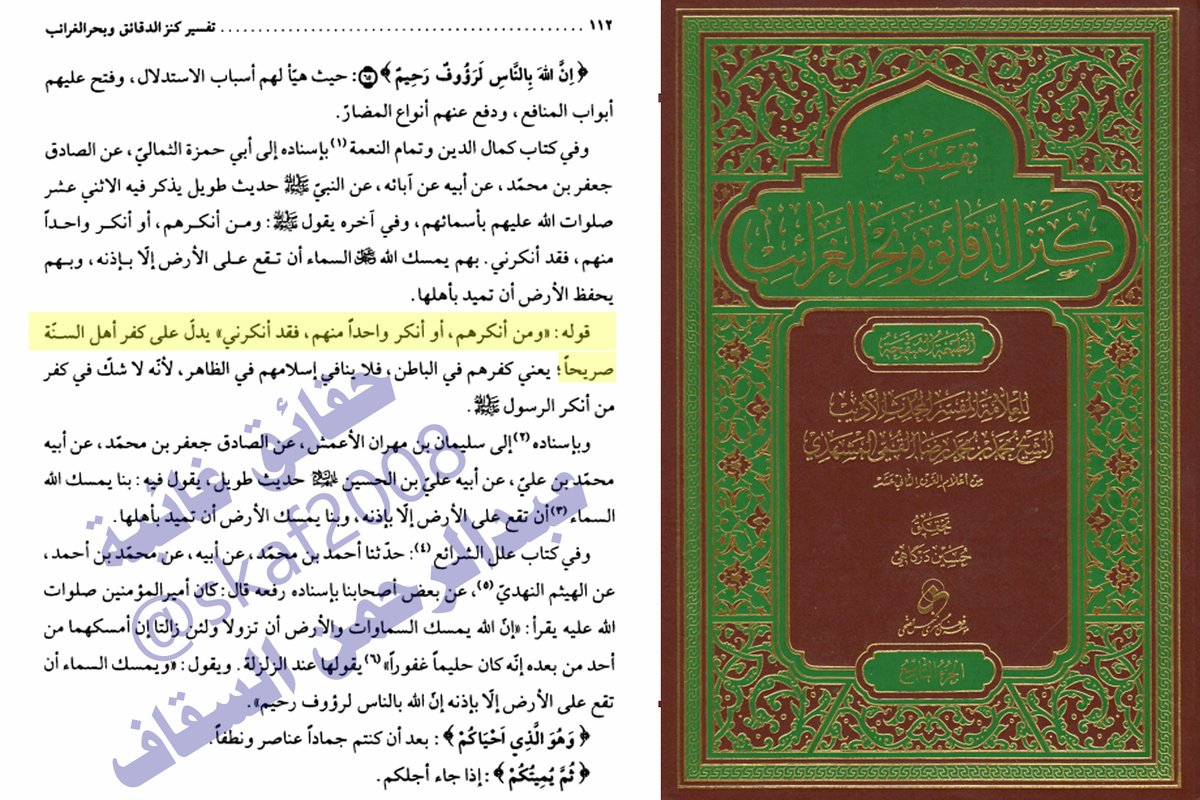 ١١٢ ........................ تفسير كنز الدقائق وبحر الغرائب
﴿ اِنَّ اللهَ بِالنَّاسِ لَرَؤُوفٌ رَحِيمٌ ﴾ ٦٥ : حيث هيّأ لهم أسباب الاستدلال، وفتح عليهم
أبواب المنافع، ودفع عنهم أنواع المضارّ.
وفي كتاب كمال الدين وتمام النعمة (١) بإسناده إلى أبي حمزة الثماليّ، عن الصادق
جعفر بن محمّد، عن أبيه عن آبائه، عن النبيّ ﷺ حديث طويل يذكر فيه الاثني عشر
صلوات الله عليهم بأسمائهم، وفي آخره يقول ﷺ: ومـن أنكـرهم، أو أنكـر واحـداً
منهم، فقد أنكرني. بهم يمسك الله السماء أن تـقع عـلى الأرض إلّا بـإذنه، وبـهم
يحفظ الأرض أن تميد بأهلها.
قوله: «ومن أنكرهم، أو أنكر واحداً منهم، فقد أنكرني» يدلّ على كفر أهل السـنّة
صريحاً؛ يعني كفرهم في الباطن، فلا ينافي إسلامهم في الظاهر، لأنّه لا شكّ في كفر
من أنكر الرسول ﷺ.
وبإسناده (٢) إلى سليمان بن مهران الأعمش، عن الصادق جعفر بن محمّد، عن أبيه
محمّد بن عليّ، عن أبيه عليّ بن الحسين حديث طويل، يقول فيه: بنا يمسك الله
السماء (٣) أن تقع على الأرض إلّا بإذنه، وبنا يمسك الأرض أن تميد بأهلها.
وفي كتاب علل الشرائع (٤): حدّثنا أحمد بن محمّد، عن أبيه، عن محمّد بن أحمد،
عن الهيثم النهديّ (٥)، عن بعض أصحابنا بإسناده رفعه قال: كان أمير المؤمنين صلوات
الله عليه يقرأ: «إنّ الله يمسك السماوات والأرض أن تزولا ولئن زالتا إن أمسكهما من
أحد من بعده إنّه كان حليماً غفوراً» (٦) يقولها عند الزلزلة. ويقول: «ويمسك السماء أن
تقع على الأرض إلّا بإذنه إنّ الله بالناس لرؤوف رحيم».
﴿ وَهُوَ الَّذِي اَحْيَاكُمْ ﴾ : بعد أن كنتم جماداً عناصر ونطفاً.
﴿ ثُمَّ يُمِيتُكُمْ ﴾ : إذا جاء أجلكم.
حقائق غائبة
@skaf2008
عبدالرحمن السقاف
تفسير
كنز الدقائق وبحر الغرائب
الطبعة المنقحة
للعلامة المفسر المحدث الأديب
الشيخ محمد بن محمد رضا القمي المشهدي
من أعلام القرن الثاني عشر
تحقيق
حسين درگاهي
الجزء التاسع